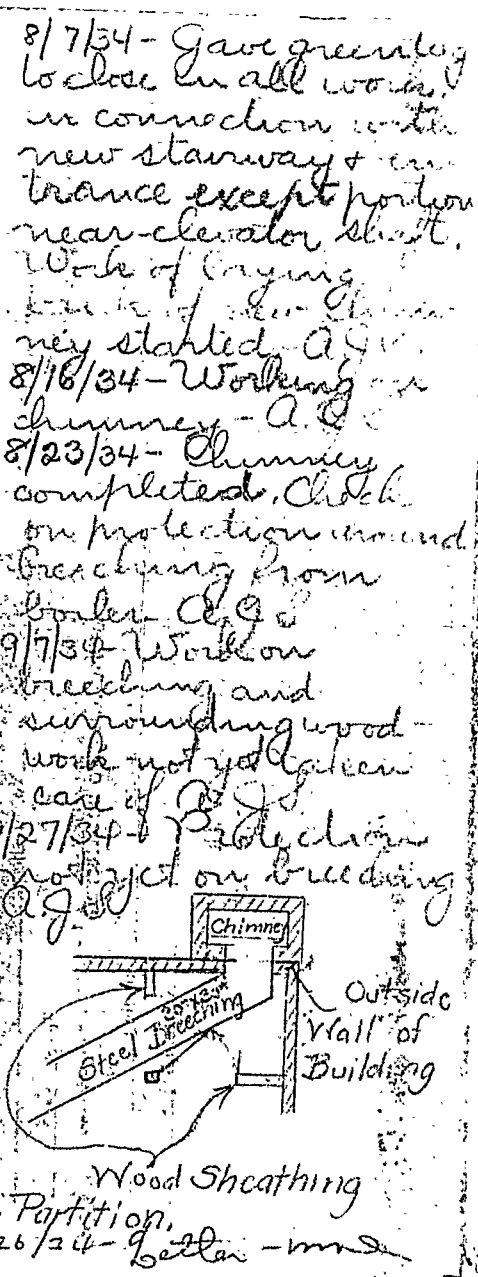 8/7/34 - Gave green tag
to close in all work
in connection with
new stairway & en-
trance except portion
near elevator shaft.
Work of laying
brick of new chim-
ney started A.J.
8/16/34 - Working on
chimney - A.J.
8/23/34 - Chimney
completed. Check
on protection around
breeching from
boiler A.J.
9/7/34 - Work on
breeching and
surrounding wood-
work not yet taken
care of A.J.
/27/34 - Protection
not yet on breeching
A.J.
Chimney
Steel Breeching
Outside
Wall of
Building
Wood Sheathing
Partition.
26/34 - Letter -